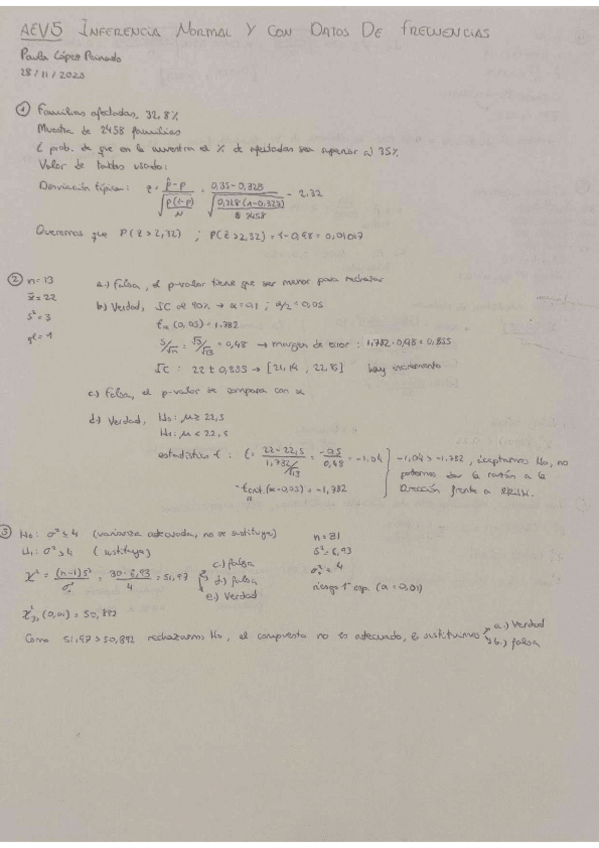 AEV5 INFERENCIA NORMAL Y CON DATOS DE FRECUENCIAS
Paula López Peinado
28/11/2023
① Familias afectadas, 32,8%
Muestra de 2458 familias
¿ prob. de que en la muestra el % de afectadas sea superior al 35%
Valor de tablas usado:
Desviación típica: z = (p̂-p)/√(p(1-p)/N) = (0,35-0,328)/√(0,328(1-0,328)/2458) = 2,32
Queremos que P(Z > 2,32) ; P(Z > 2,32) = 1-0,98 = 0,01017
② n=13
x̄=22
s²=3
a.) Falsa, el p-valor tiene que ser menor para rechazar
b.) Verdad, IC al 90% → α=0,1 ; α/2 = 0,05
(0,05) = 1,782
s/√n = √3/√13 = 0,48 → margen de error: 1,782·0,48 = 0,855
IC: 22 ± 0,855 → [21,14 ; 22,85] hay incremento
c.) Falsa, el p-valor se compara con α
d.) Verdad, H₀: μ ≥ 22,5
H₁: μ < 22,5
estadístico t: t = (22-22,5)/(1,732/√13) = -0,5/0,48 = -1,04
t crit. (α=0,05) = -1,782
-1,04 > -1,782, aceptamos H₀, no
podemos dar la razón a la
Dirección frente a
③ H₀: σ² ≤ 4 (varianza adecuada, no se sustituye)
H₁: σ² > 4 (sustituye)
n=31
s²=6,93
σ₀²=4
riesgo 1ª esp. (α=0,01)
χ² = (n-1)s²/σ₀² = 30·6,93/4 = 51,97
c.) falsa
d.) falsa
e.) Verdad
(0,01) = 50,892
Como 51,97 > 50,892 rechazamos H₀, el compuesto no es adecuado, lo sustituimos
a.) Verdad
b.) falsa